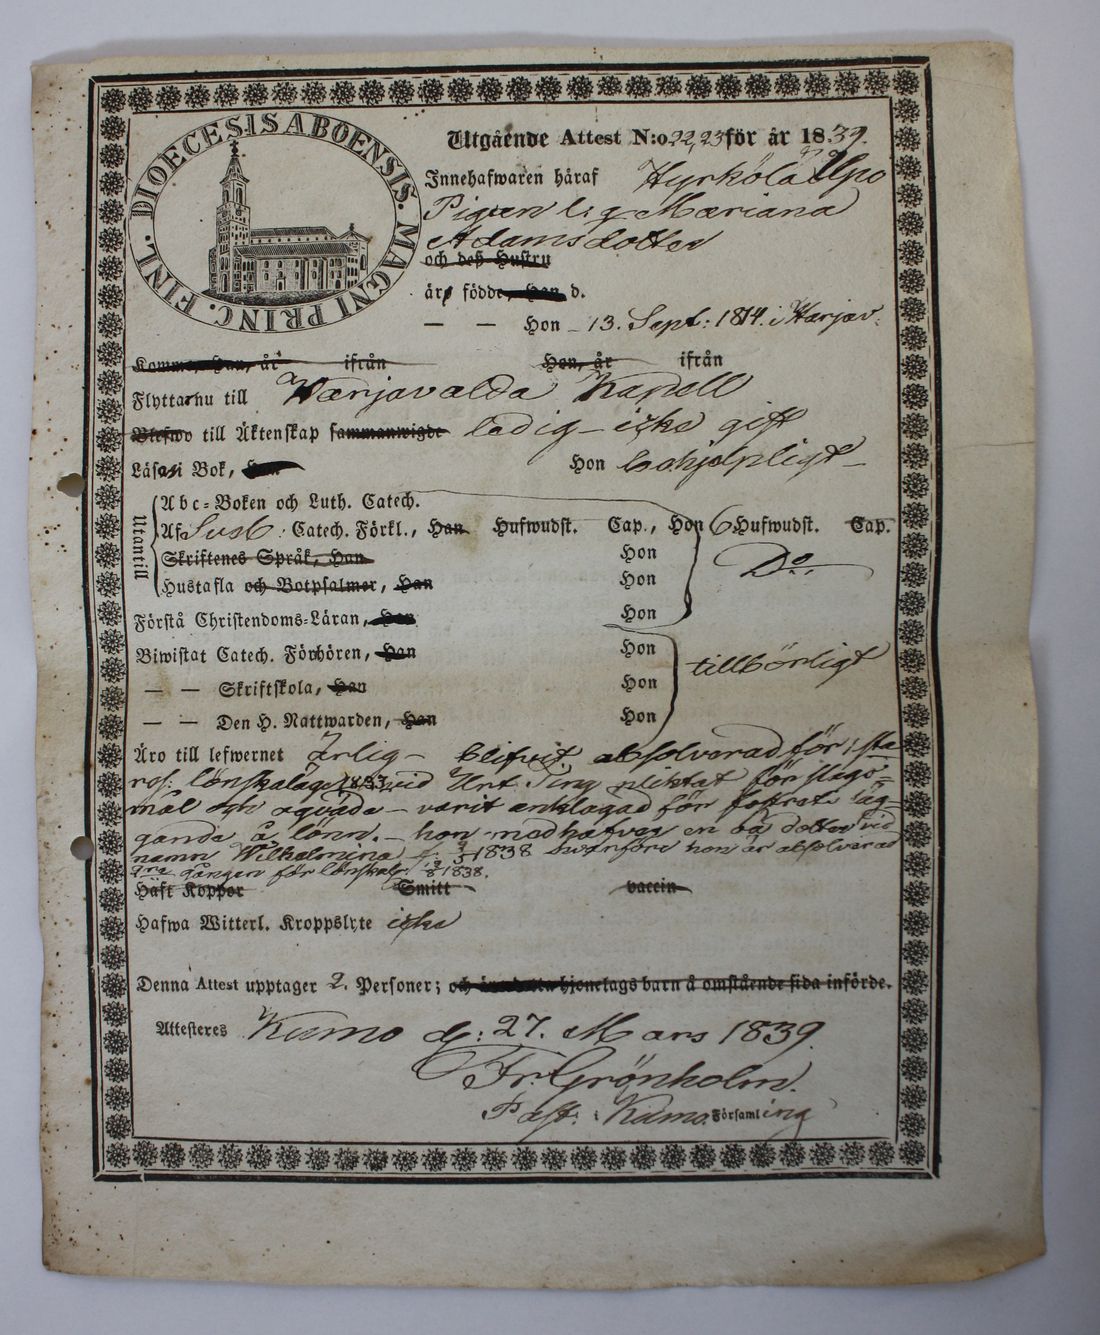 DIOECESIS ABOENSIS. MAGNI PRINC. FINL.
Utgående Attest N:o 22,23 för år 1839.
Innehafwaren häraf Hyrkölä
Pigan Mariana
Adamsdotter
och deß Hustru
äro födde, Han d.
— — Hon 13. Sept: 1814. i Harjav:
Kommo, Han, år ifrån Hon, år ifrån
Flytta nu till Harjavalda Kapell
Blefwo till Äktenskap sammanwigde ledig – icke gift
Läsa i Bok, Han Hon behjelpligt
Utantill
Abc-Boken och Luth. Catech.
Af Sveb: Catech. Förkl., Han Hufwudst. Cap., Hon 6 Hufwudst. Cap.
Skriftenes Språk, Han Hon Do
Hustafla och Botpsalmer, Han Hon
Förstå Christendoms-Läran, Han Hon
Biwistat Catech. Förhören, Han Hon
— — Skriftskola, Han Hon tillbörligt
— — Den H. Nattwarden, Han Hon
Äro till lefwernet Ärlig – blifvit absolverad för 1sta
res. lönskaläge 1837 vid Urt. Ting pliktat för slags-
mål och oqväde – varit anklagad för fosters läg-
gande å lönn. – hon medhafver en oä dotter vid
namn Wilhelmina f. 1838 hvarföre hon är absolverad
2dra gången för lönskal. 1838.
Haft Koppor Smitt vaccin
Hafwa Witterl. Kroppslyte icke
Denna Attest upptager 2. Personer; och äro detta hjonelags barn å omstående sida införde.
Attesteres Kumo d: 27. Mars 1839.
Fr. Grönholm.
Past. i Kumo Församling